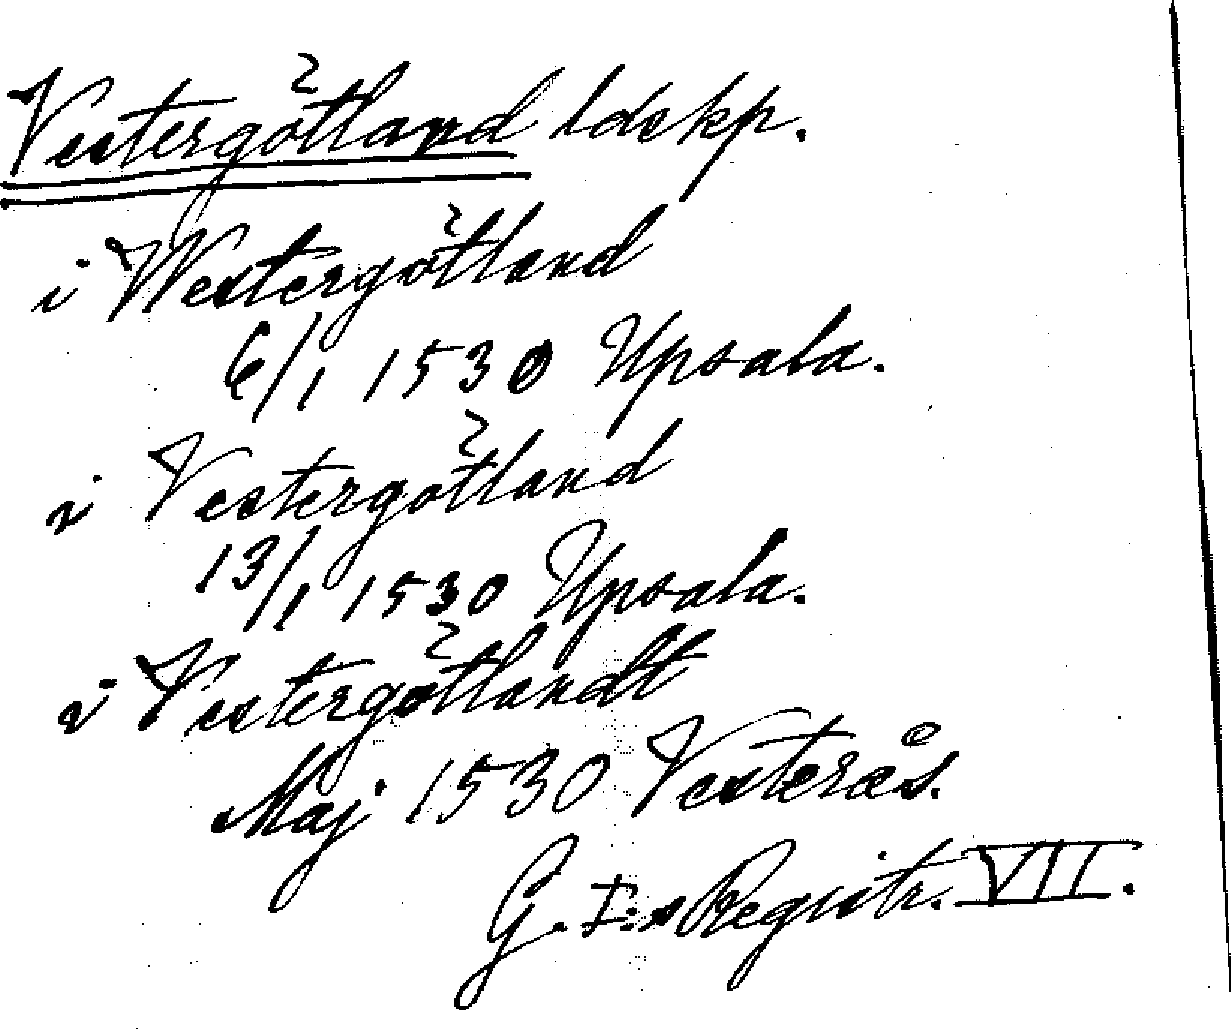 Vestergötland ldskp.
i Westergötland
6/1 1530 Upsala.
i Vestergötland
13/1 1530 Upsala.
i Vestergötlandt
Maj 1530 Vesterås.
G. I:s Registr. VII.